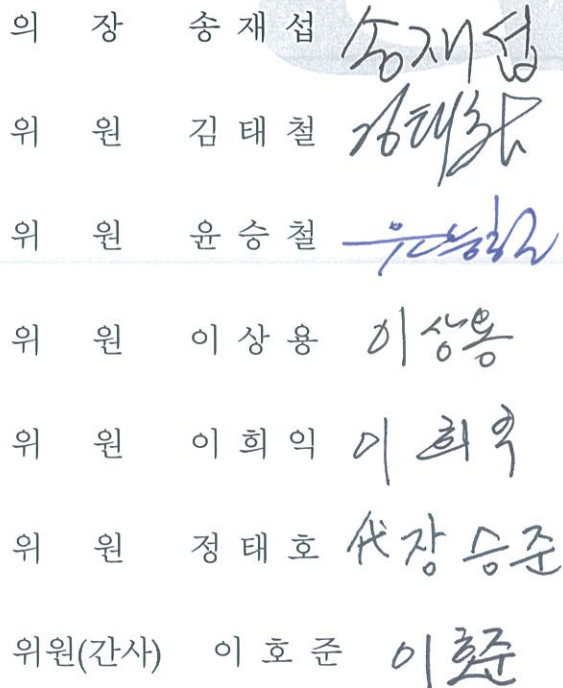 의 장 송 재 섭 송재섭
위 원 김 태 철 김태철
위 원 윤 승 철 윤승철
위 원 이 상 용 이상용
위 원 이 희 익 이희익
위 원 정 태 호 代 장승준
위원(간사) 이 호 준 이호준